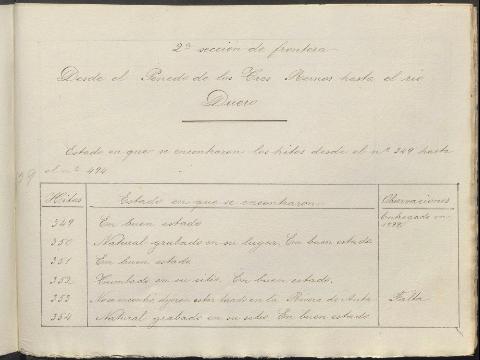 2ª sección de frontera
Desde el Penedo de los Tres Reinos hasta el rio
Duero
Estado en que se encontraron los hitos desde el nº 349 hasta
el nº 494
Hitos Estado en que se encontraron Observaciones
349 En buen estado
350 Natural grabado en su lugar. En buen estado
351 En buen estado
352 Tumbado en su sitio. En buen estado.
353 No se encontró dijeron estar en la Falta
354 Natural grabado en su sitio En buen estado